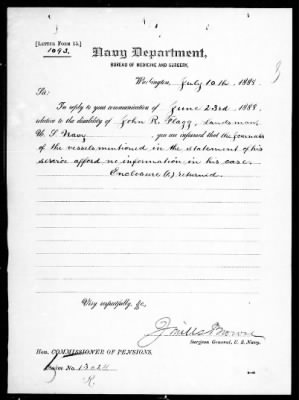 [LETTER FORM 15.]
1093.
Navy Department,
BUREAU OF MEDICINE AND SURGERY,
Washington, July 10th, 1888.
Sir:
In reply to your communication of June 23rd 1888,
relative to the disability of John R. Flagg, landsman,
U. S. Navy, you are informed that the Journals
of the vessels mentioned in the statement of his
service afford no information in his case.
Enclosure (A) returned.
Very respectfully, &c.,
J Mills Browne
Surgeon General, U. S. Navy.
Hon. COMMISSIONER OF PENSIONS.
Claim No. 13024
K.